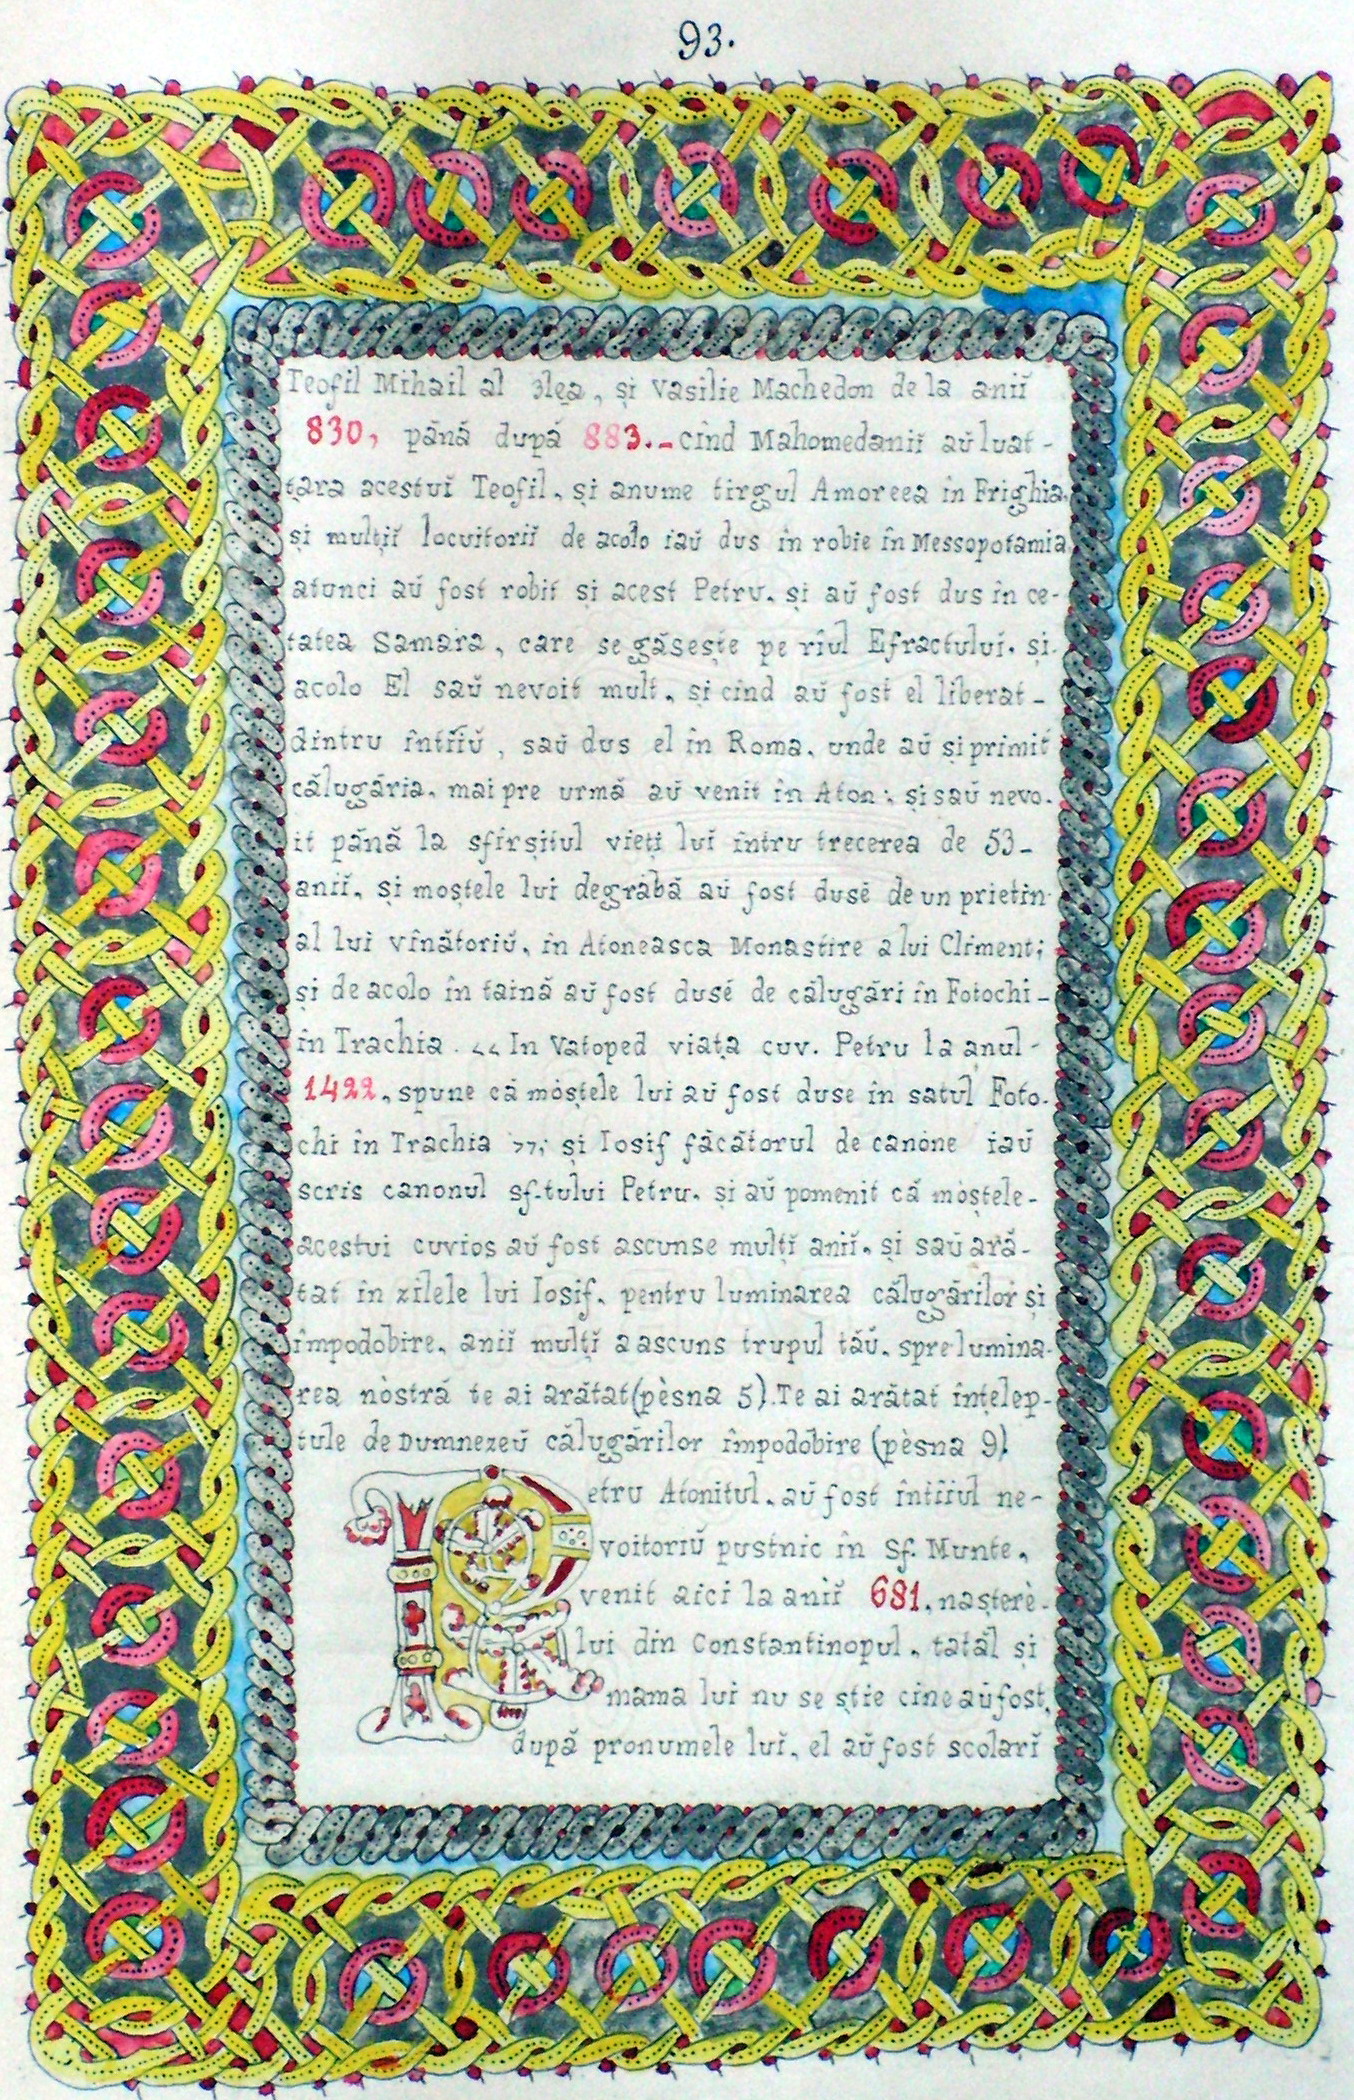 93.
Teofil Mihail al 3lea, și Vasilie Machedon de la aniĭ
830, pănă după 883.– cînd Mahomedaniĭ aŭ luat -
țara acestuĭ Teofil, și anume tirgul Amoreea în Frighia,
și mulțiĭ locuitoriĭ de acolo iaŭ dus în robie în Messopotamia
atunci aŭ fost robit și acest Petru, și aŭ fost dus în ce-
tatea Samara, care se găsește pe rîul Efractuluĭ. și.
acolo El saŭ nevoit mult, și cînd aŭ fost el liberat –
dintru întîiŭ, saŭ dus el în Roma, unde aŭ și primit
călugăria, mai pre urmă aŭ venit în Aton; și saŭ nevo.
it pănă la sfîrșitul vieți luĭ întru trecerea de 53–
aniĭ, și moștele lui degrăbă aŭ fost dusĕ de un prietin
al lui vînătoriŭ, în Atoneasca Monastire a lui Climent;
și de acolo în taină aŭ fost dusĕ de călugări în Fotochi –
în Trachia. „ In Vatoped viața cuv. Petru la anul -
1422, spune că moștele lui aŭ fost duse în satul Foto.
chi în Trachia ”; și Iosif făcătorul de canone iaŭ
scris canonul sf-tului Petru, și aŭ pomenit că moștele-
acestui cuvios aŭ fost ascunse mulțĭ aniĭ, și saŭ ară-
tat în zilele lui Iosif, pentru luminarea călugărilor și
împodobire, aniĭ mulțĭ a ascuns trupul tăŭ, spre lumina-
rea nòstră te ai arătat (pèsna 5). Te ai arătat înțelep-
tule de Dumnezeŭ călugărilor împodobire (pèsna 9)
Petru Atonitul, aŭ fost întîiul ne-
voitoriŭ pustnic în Sf. Munte,
venit aici la aniĭ 681, nașterè-
lui din Constantinopul, tatăl și
mama lui nu se știe cine aŭ fost,
după pronumele luĭ, el aŭ fost scolarĭ